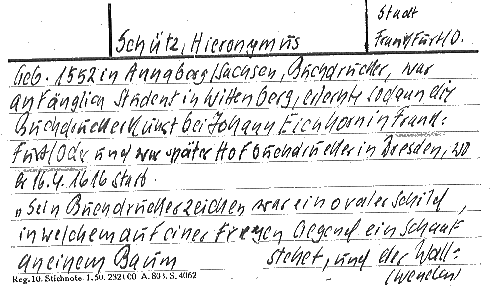 Stadt
Schütz, Hieronymus Frankfurt/O.
Geb. 1552 in Annaberg/Sachsen, Buchdrucker, war
anfänglich Student in Wittenberg, erlernte sodann die
Buchdruckerkunst bei Johann Eichhorn in Frank-
furt/Oder und war später Hofbuchdrucker in Dresden, wo
er 16.4.1616 starb.
"Sein Buchdruckerzeichen war ein ovaler Schild,
in welchem auf einer freyen Gegend ein Schaaf
an einem Baum stehet, und der Wall-
Reg. 10. Stichnote 1. 50. 232100 A. 803. S. 4062